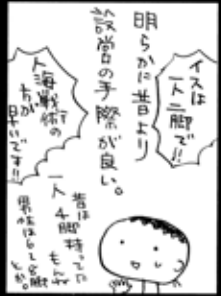 イスは
一人二脚で!!
明らかに昔より
設営の手際が良い。
人海戦術の
ほうが
早いです!!
昔は
一人4脚持ってた
もんね
男性は6~8脚
とか。